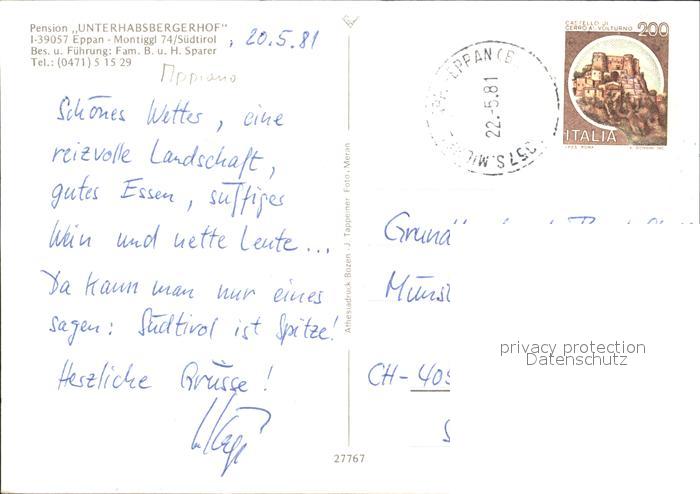 Pension „UNTERHABSBERGERHOF"
I-39057 Eppan - Montiggl 74/Südtirol
Bes. u. Führung: Fam. B. u. H. Sparer
Tel.: (0471) 5 15 29
, 20.5.81
Appiano
Schönes Wetter, eine
reizvolle Landschaft,
gutes Essen, süffiges
Wein und nette Leute...
Da kann man nur eines
sagen: Südtirol ist Spitze!
Herzliche Grüsse!
Athesiadruck Bozen · J. Tappeiner Foto, Meran
27767
EPPAN (B
22.-5.81
057 S. MIC
CASTELLO DI
CERRO AL VOLTURNO
200
ITALIA
CH-
privacy protection
Datenschutz